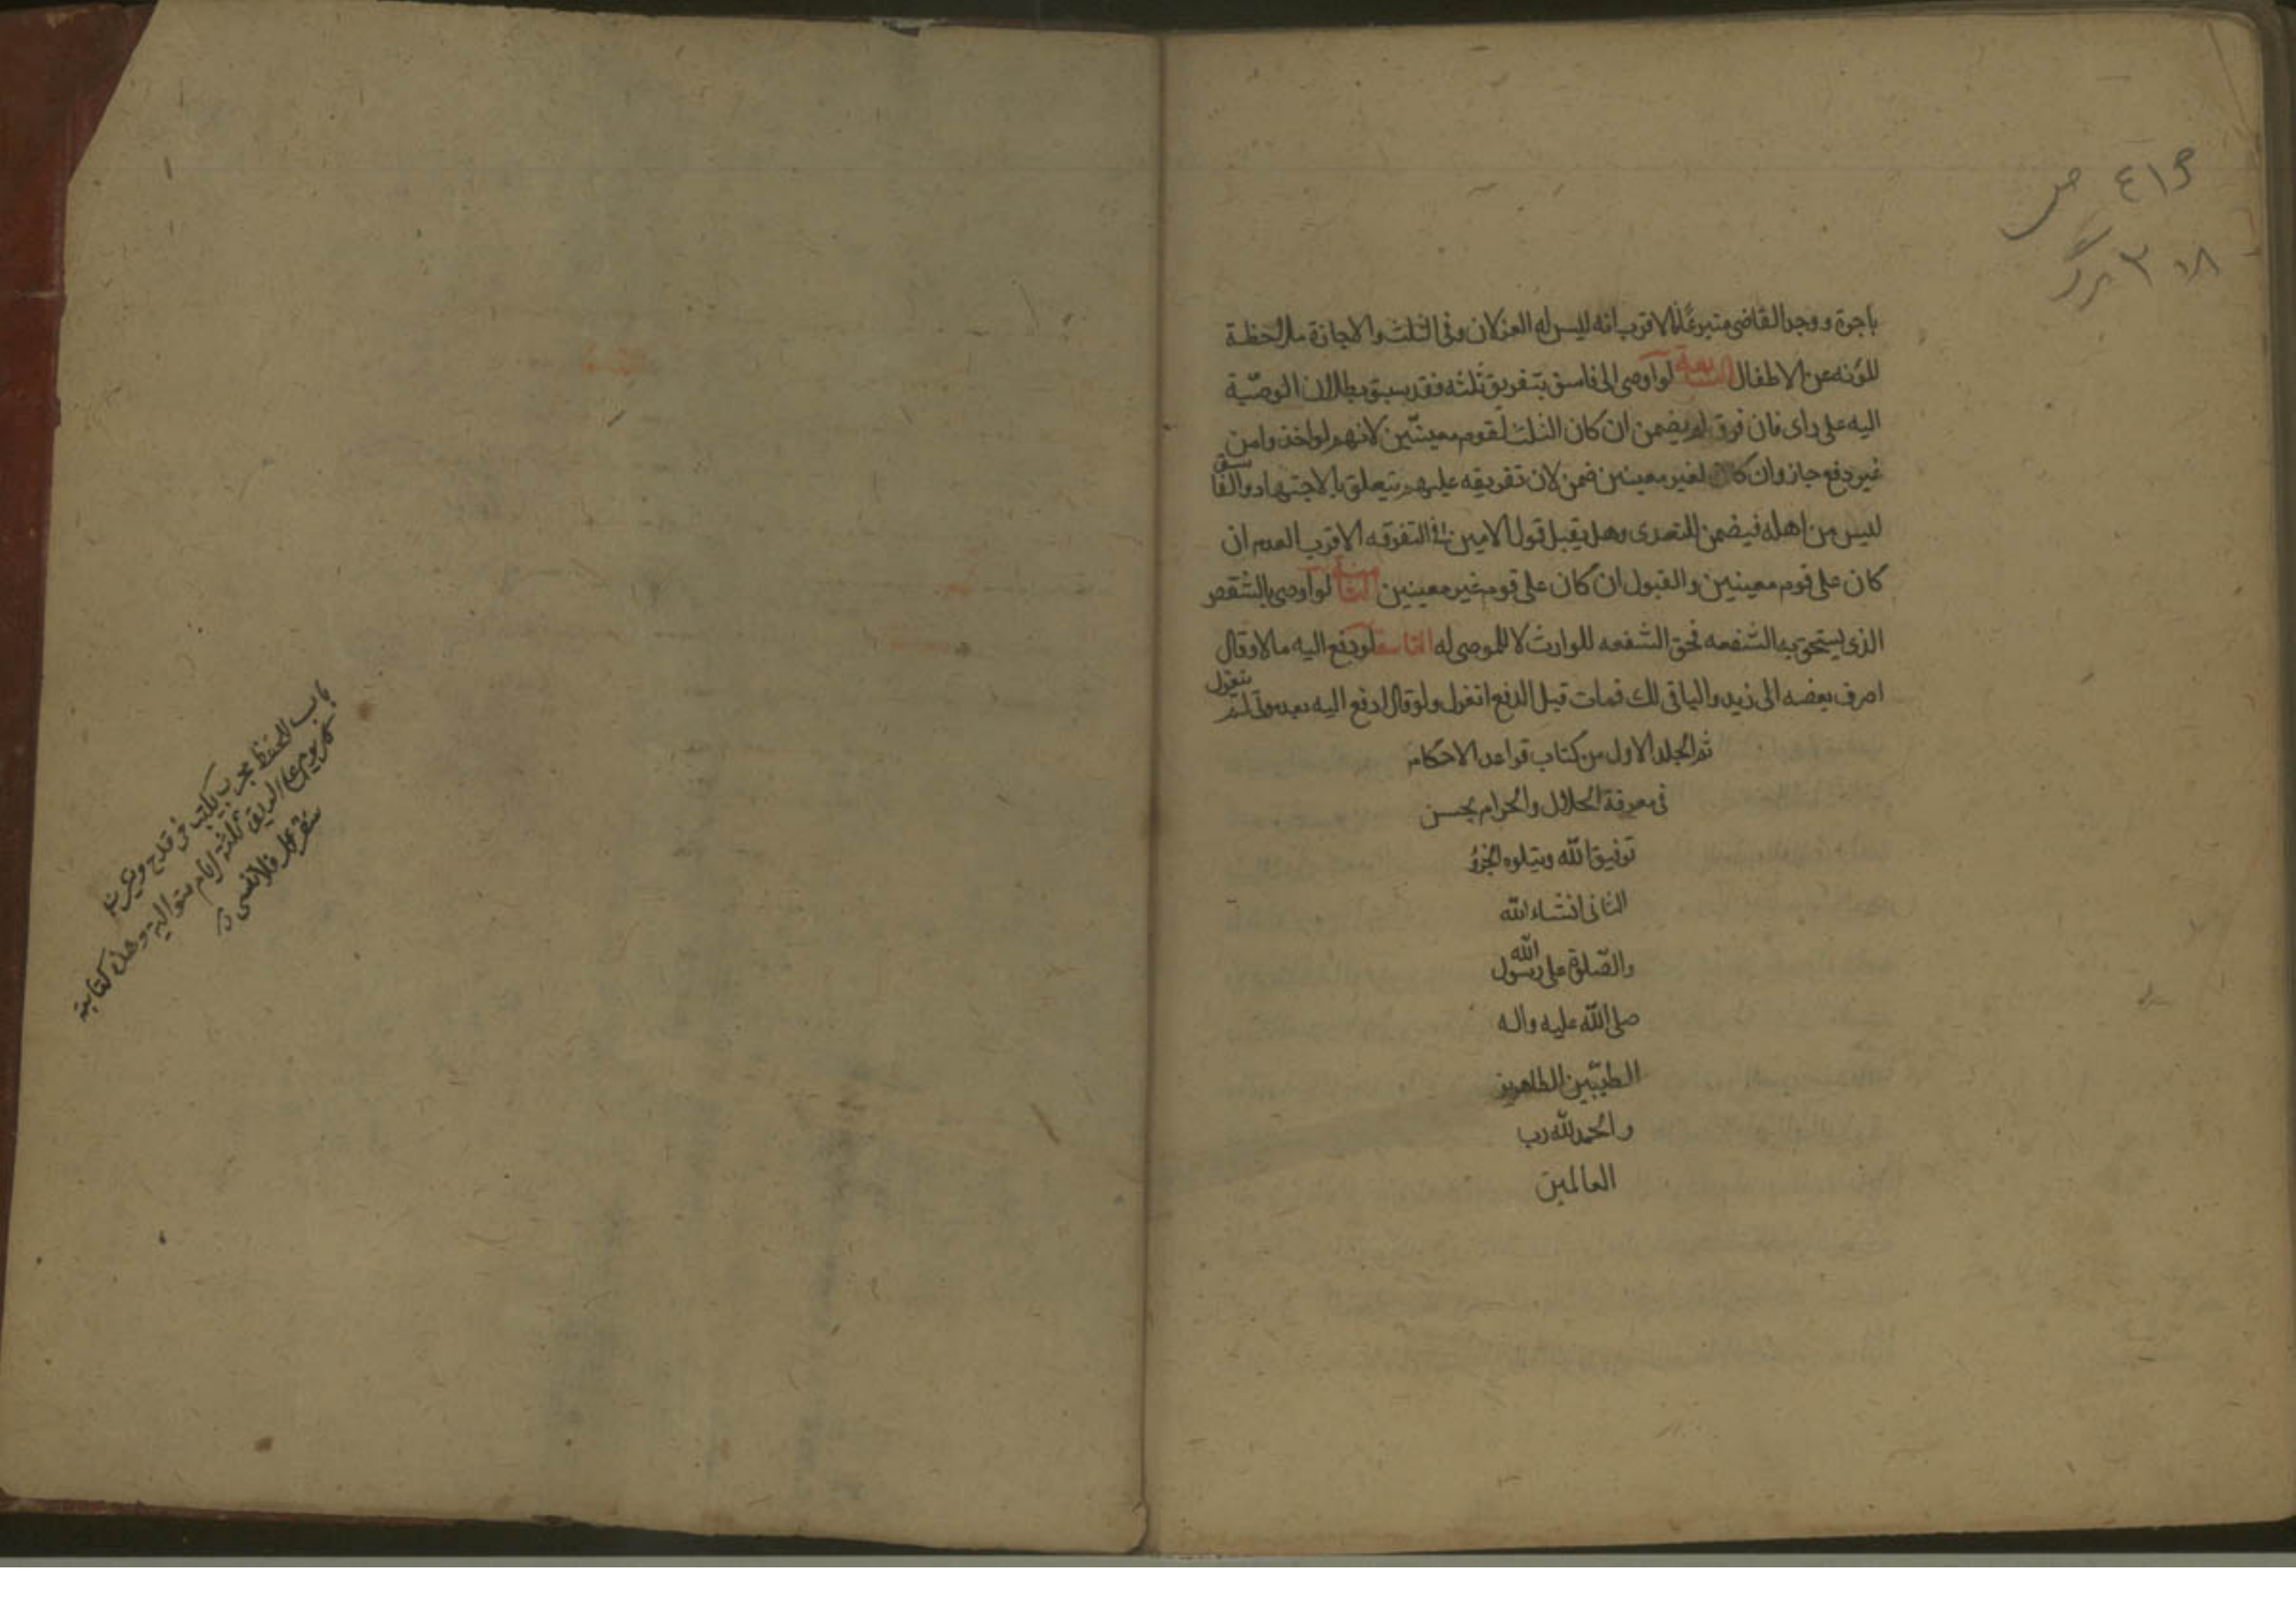 ٤١٦ ص
٣٠٨ برگ
باجرة ووجد القاضى متبرعًا فالاقرب انه ليس له العزلان وفى الثلث والاجازة ملاحظة
للمؤنه عن الاطفال السابعة لو اوصى الى فاسق بتفريق ثلثه فقد سبق بطلان الوصيّة
اليه على راى فان فرق لم يضمن ان كان الثلث لقوم معينّين لانهم لو اخذوا من
غير دفع جاز وان كان لغير معينين ضمن لان تفريقه عليهم يتعلق بالاجتهاد والفاسق
ليس من اهله فيضمن للتعدى وهل يقبل قول الامين فى التفرقه الاقرب العدم ان
كان على قوم معينين والقبول ان كان على قوم غير معينين الثامنة لو اوصى بالشقص
الذى يستحق به الشفعه فحق الشفعه للوارث لا للموصى له التاسعة لو دفع اليه مالا وقال
اصرف بعضه الى زيد والباقى لك فمات قبل الدفع انعزل ولو قال ادفع اليه بعد موتى لم ينعزل
تم الجلد الاول من كتاب قواعد الاحكام
فى معرفة الحلال والحرام بحسن
توفيق الله ويتلوه الجزؤ
الثانى انشاء الله
والصّلوة على رسول الله
صلى الله عليه واله
الطيّبين الطاهرين
والحمد لله رب
العالمين
باب للحفظ مجرب يكتب فى قدح ويشرب
كل يوم على الريق ثلثه ايام متوالية وهذه كتابته
سنقرئك فلا تنسى